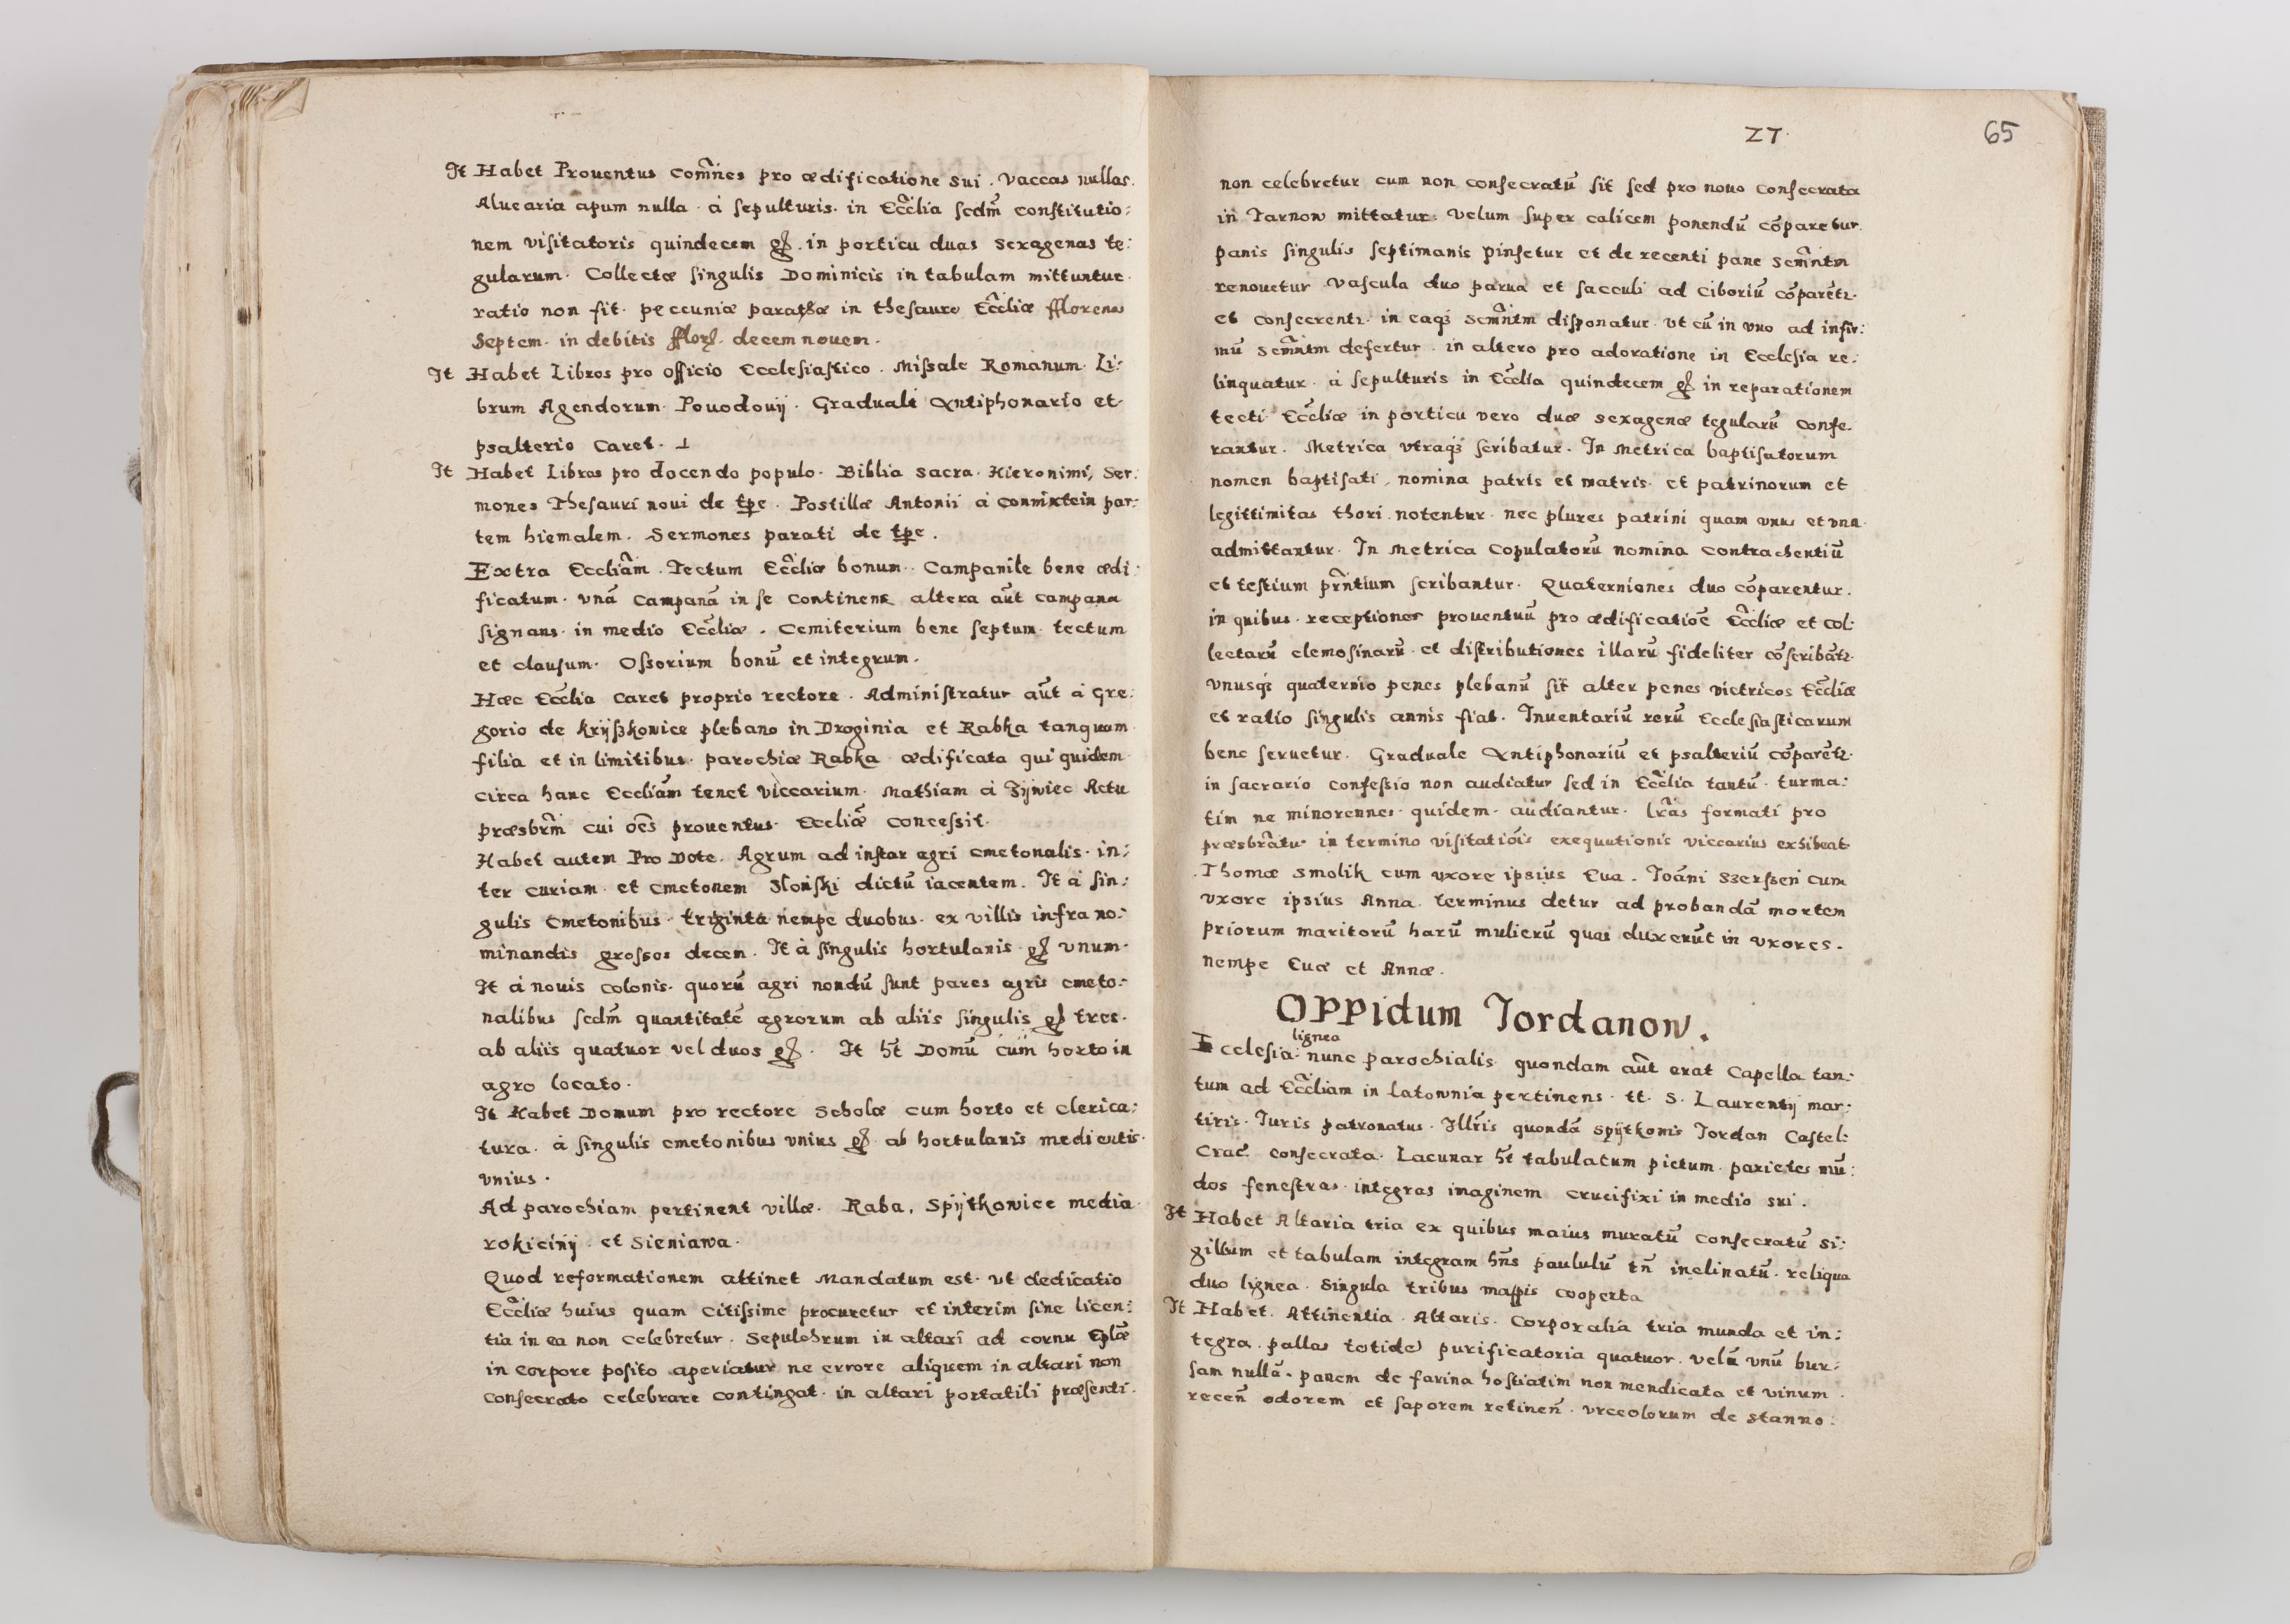 It Habet Prouentus Com̃nes pro ædificatione sui. Vaccas nullas.
Aluearia apum nulla. à sepulturis. in Ecc̃lia scdm̃ constitutio:
nem visitatoris quindecem gſ. in porticu duas sexagenas te:
gularum. Collectæ singulis Dominicis in tabulam mittuntur.
ratio non fit. peccuniæ paratæ in thesauro Ecc̃liæ fflorenos
Septem. in debitis fflorſ. decem nouem.
It Habet Libros pro officio Ecclesiastico. Missale Romanum. Li:
brum Agendorum. Pouodouij. Graduali Antiphonario et
psalterio Caret. ⊥
It Habet Libros pro docendo populo. Biblia sacra. Hieronimi, Ser:
mones Thesauri noui de tpe. Postillæ Antonii à Connixtein par:
tem hiemalem. Sermones parati de tpe.
Extra Eccliãm. Tectum Ecc̃liæ bonum. Campanile bene ædi:
ficatum. vnã Campanã in se Continens altera aũt campana
signans. in medio Ecc̃liæ. Cemiterium bene septum. tectum
et clausum. Ossorium bonũ et integrum.
Hæc Ecc̃lia Caret proprio rectore. Administratur aũt à Gre:
gorio de Krijßkowice plebano in Droginia et Rabka tanquam
filia et in limitibus. parochiæ Rabka ædificata qui quidem
circa hanc Eccliãm tenet viccarium. Mathiam à Zijwiec Actu
præsbrm̃ cui oẽs prouentus. Eccliæ̃ concessit.
Habet autem Pro Dote. Agrum ad instar agri cmetonalis. in:
ter curiam. et cmetonem Slonski dictũ iacentem. It à sin:
gulis Cmetonibus. triginta nempe duobus. ex villis infra no:
minandis grossos decen. It à singulis hortulanis. gſ vnum.
It à nouis colonis. quorũ agri nondũ sunt pares agris cmeto:
nalibus scdm̃ quantitatẽ agrorum ab aliis singulis gſ tres.
ab aliis quatuor vel duos gſ. It ht̃ Domũ cum horto in
agro locato.
It Habet Domum pro rectore Scholæ cum horto et clerica:
tura. à singulis cmetonibus vnius gſ. ab hortulanis medientis.
vnius.
Ad parochiam pertinent villæ. Raba, Spijtkowice media
rokicinij. et Sieniawa.
Quod reformationem attinet Mandatum est. vt dedicatio
Ecc̃liæ huius quam citissime procuretur et interim sine licen:
tia in ea non celebretur. Sepulchrum in altari ad cornu Eplæ̃
in corpore posito aperiatur ne errore aliquem in altari non
consecrato celebrare contingat. in altari portatili præsenti.
27.
65
non celebretur cum non consecratũ sit sed pro nouo consecrata
in Tarnow mittatur. velum super calicem ponendũ cõparetur.
panis singulis septimanis pinsetur et de recenti pane scm̃ntm
renouetur. Vascula duo parua et sacculi ad ciboriũ cõparẽtr.
et consecrentr. in eaqȝ scm̃ntm disponatur. vt cũ in vno ad infir:
mũ scm̃ntm defertur. in altero pro adoratione in Ecclesia re:
linquatur. à sepulturis in Ecc̃lia quindecem gſ in reparationem
tecti Ecc̃liæ in porticu vero duæ sexagenæ tegularũ Confe.
rantur. Metrica vtraqȝ scribatur. In metrica baptisatorum
nomen baptisati, nomina patris et matris. et patrinorum et
legittimitas thori notentur. nec plures patrini quam vnus et vna.
admittantur. In Metrica Copulatorũ nomina contrachentiũ
et testium prñtium scribantur. Quaterniones duo cõparentur.
in quibus. receptiones prouentuũ pro ædificatiõe Ecc̃liæ et col:
lectarũ elemosinarũ. et distributiones illarũ fideliter cõscribãtr.
vnusqȝ quaternio penes plebanũ sit alter penes victricos Ecc̃liæ
et ratio singulis annis fiat. Inuentariũ rerũ Ecclesiasticarum
bene seruetur. Graduale Antiphonariũ et psalteriũ cõparẽtr.
in sacrario confessio non audiatur sed in Ecc̃lia tantũ. turma:
tim ne minorennes. quidem. audiantur. lrãs formati pro
præsbrãtu in termino visitatiõis exequutionis viccarius exhibeat.
Thomæ Smolik cum vxore ipsius Eua. Joãni Szerssen cum
vxore ipsius Anna. terminus detur ad probandã mortem
priorum maritorũ harũ mulierũ quas duxerũt in vxores.
nempe Euæ et Annæ.
OPPidum Jordanow.
lignea
Ecclesia: nunc parochialis. quondam aũt erat Capella tan:
tum ad Ecc̃liam in Latownia pertinens. tt. S. Laurentij mar:
tiris. Juris patronatus. Illris quondã Spijtkonis Jordan Castel:
Crac̃. Consecrata. Lacunar ht̃ tabulatum pictum. parietes mũ:
dos fenestras. integras imaginem crucifixi in medio sui.
It Habet Altaria tria ex quibus maius muratũ consecratũ Si:
gillum et tabulam integram hñs paululũ tñ inclinatũ. reliqua
duo lignea. Singula tribus mappis cooperta
It Habet. Attinentia. Altaris. Corporalia tria munda et in:
tegra. pallas totidẽ purificatoria quatuor. velũ vnũ bur:
sam nullã. panem de farina hostiatim non mendicata et vinum.
recen̄ odorem et saporem retinen̄. vrceolorum de stanno.